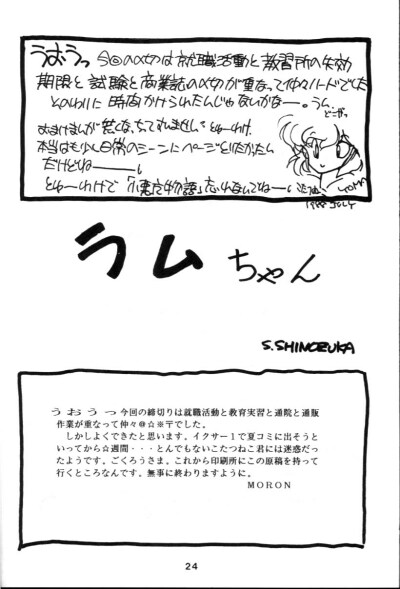 うおうっ 今回の〆切は就職活動と教習所の失効
期限と試験と商業誌の〆切が重なって仲々ハードでした
そのわりに時間かけられたんじゃないかなー。うん。
どこがっ
おまけまんが 無くなっちゃってすみません。とゆーわけ。
本当はもう少し日常のシーンにページをとりたかったん
だけどねー
とゆーわけで「小悪魔物語」忘れないでねー。
1988 JULY
ラムちゃん
S.SHINOZUKA
うおうっ今回の締切りは就職活動と教育実習と通院と通販
作業が重なって仲々@☆※〒でした。
しかしよくできたと思います。イクサー1で夏コミに出そうと
いってから☆週間・・・とんでもないこたつねこ君には迷惑だっ
たようです。ごくろうさま。これから印刷所にこの原稿を持って
行くところなんです。無事に終わりますように。
MORON
24